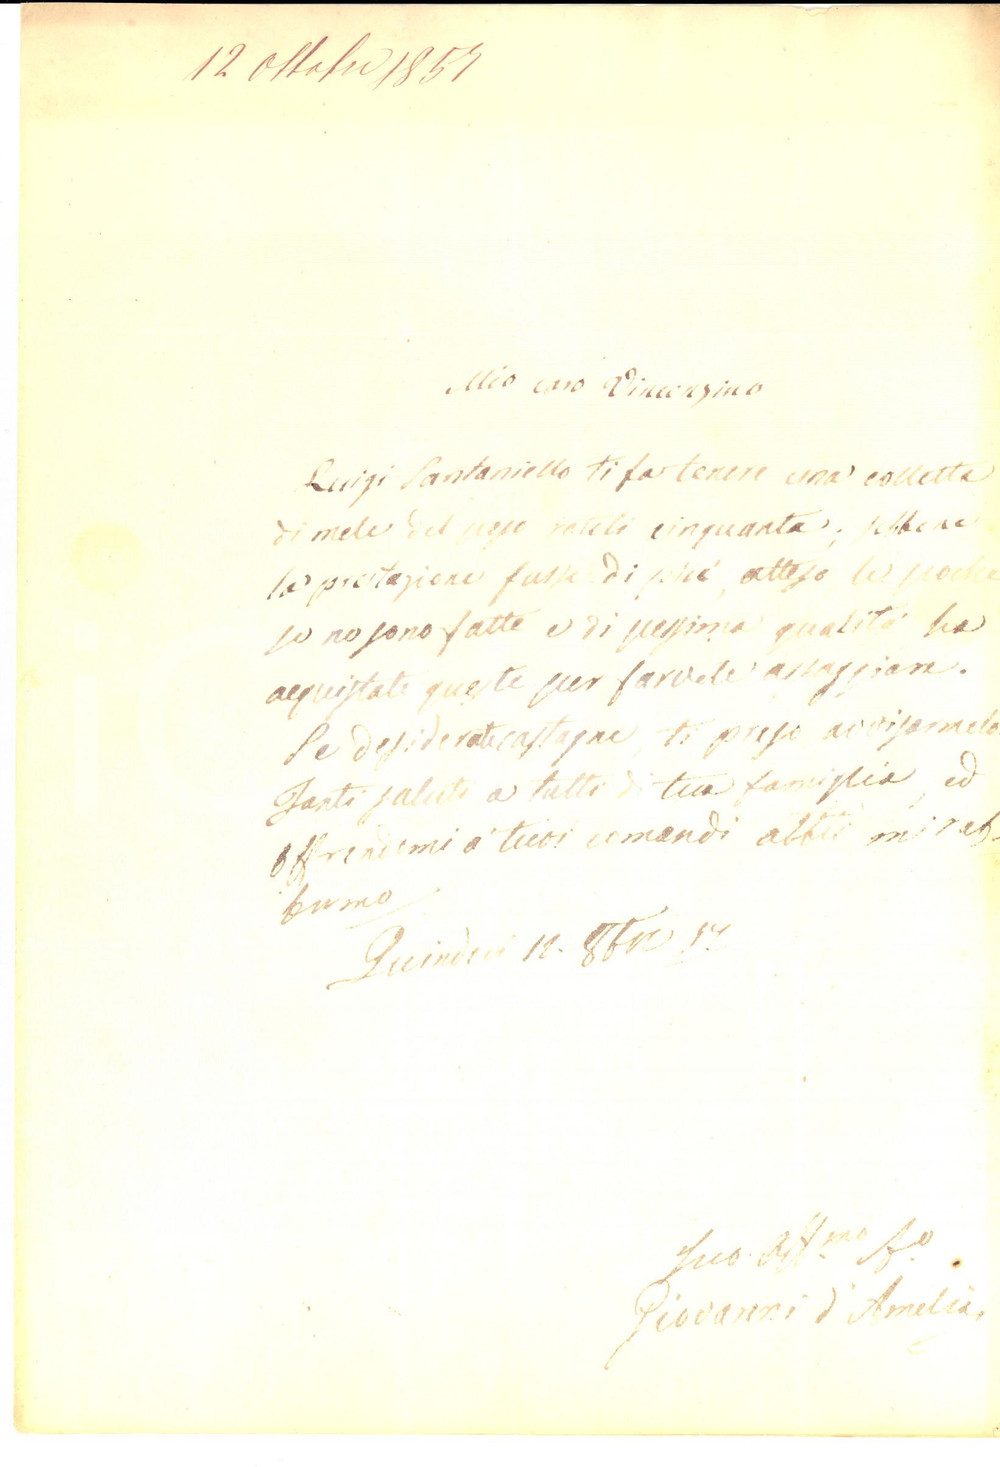 12 ottobre 1857
Mio caro Vincenzino
Luigi Santaniello ti fa tenere una colletta
di mele del peso rotoli cinquanta; sebbene
la prestazione fusse di più, atteso le poche
se ne sono fatte e di pessima qualità ha
acquistate queste per farvele assaggiare.
Se desiderate castagne, ti prego avvisarmelo
Tanti saluti a tutti di tua famiglia, ed
offrendomi a' tuoi comandi abbi mi
Quindici 12. 8bre 57
Suo Aff.mo A.o
Giovanni d'Amelia.